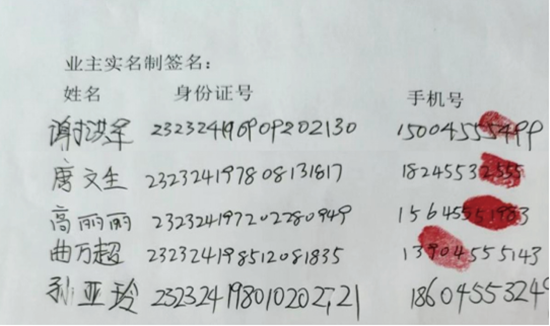 业主实名制签名：
姓名 身份证号 手机号
谢洪军 232324196909202130 15004555499
唐文生 232324197808131817 18245532555
高丽丽 232324197202280949 15645551983
曲万超 232324198512081835 13904555143
孙亚玲 232324198010202721 1860455324